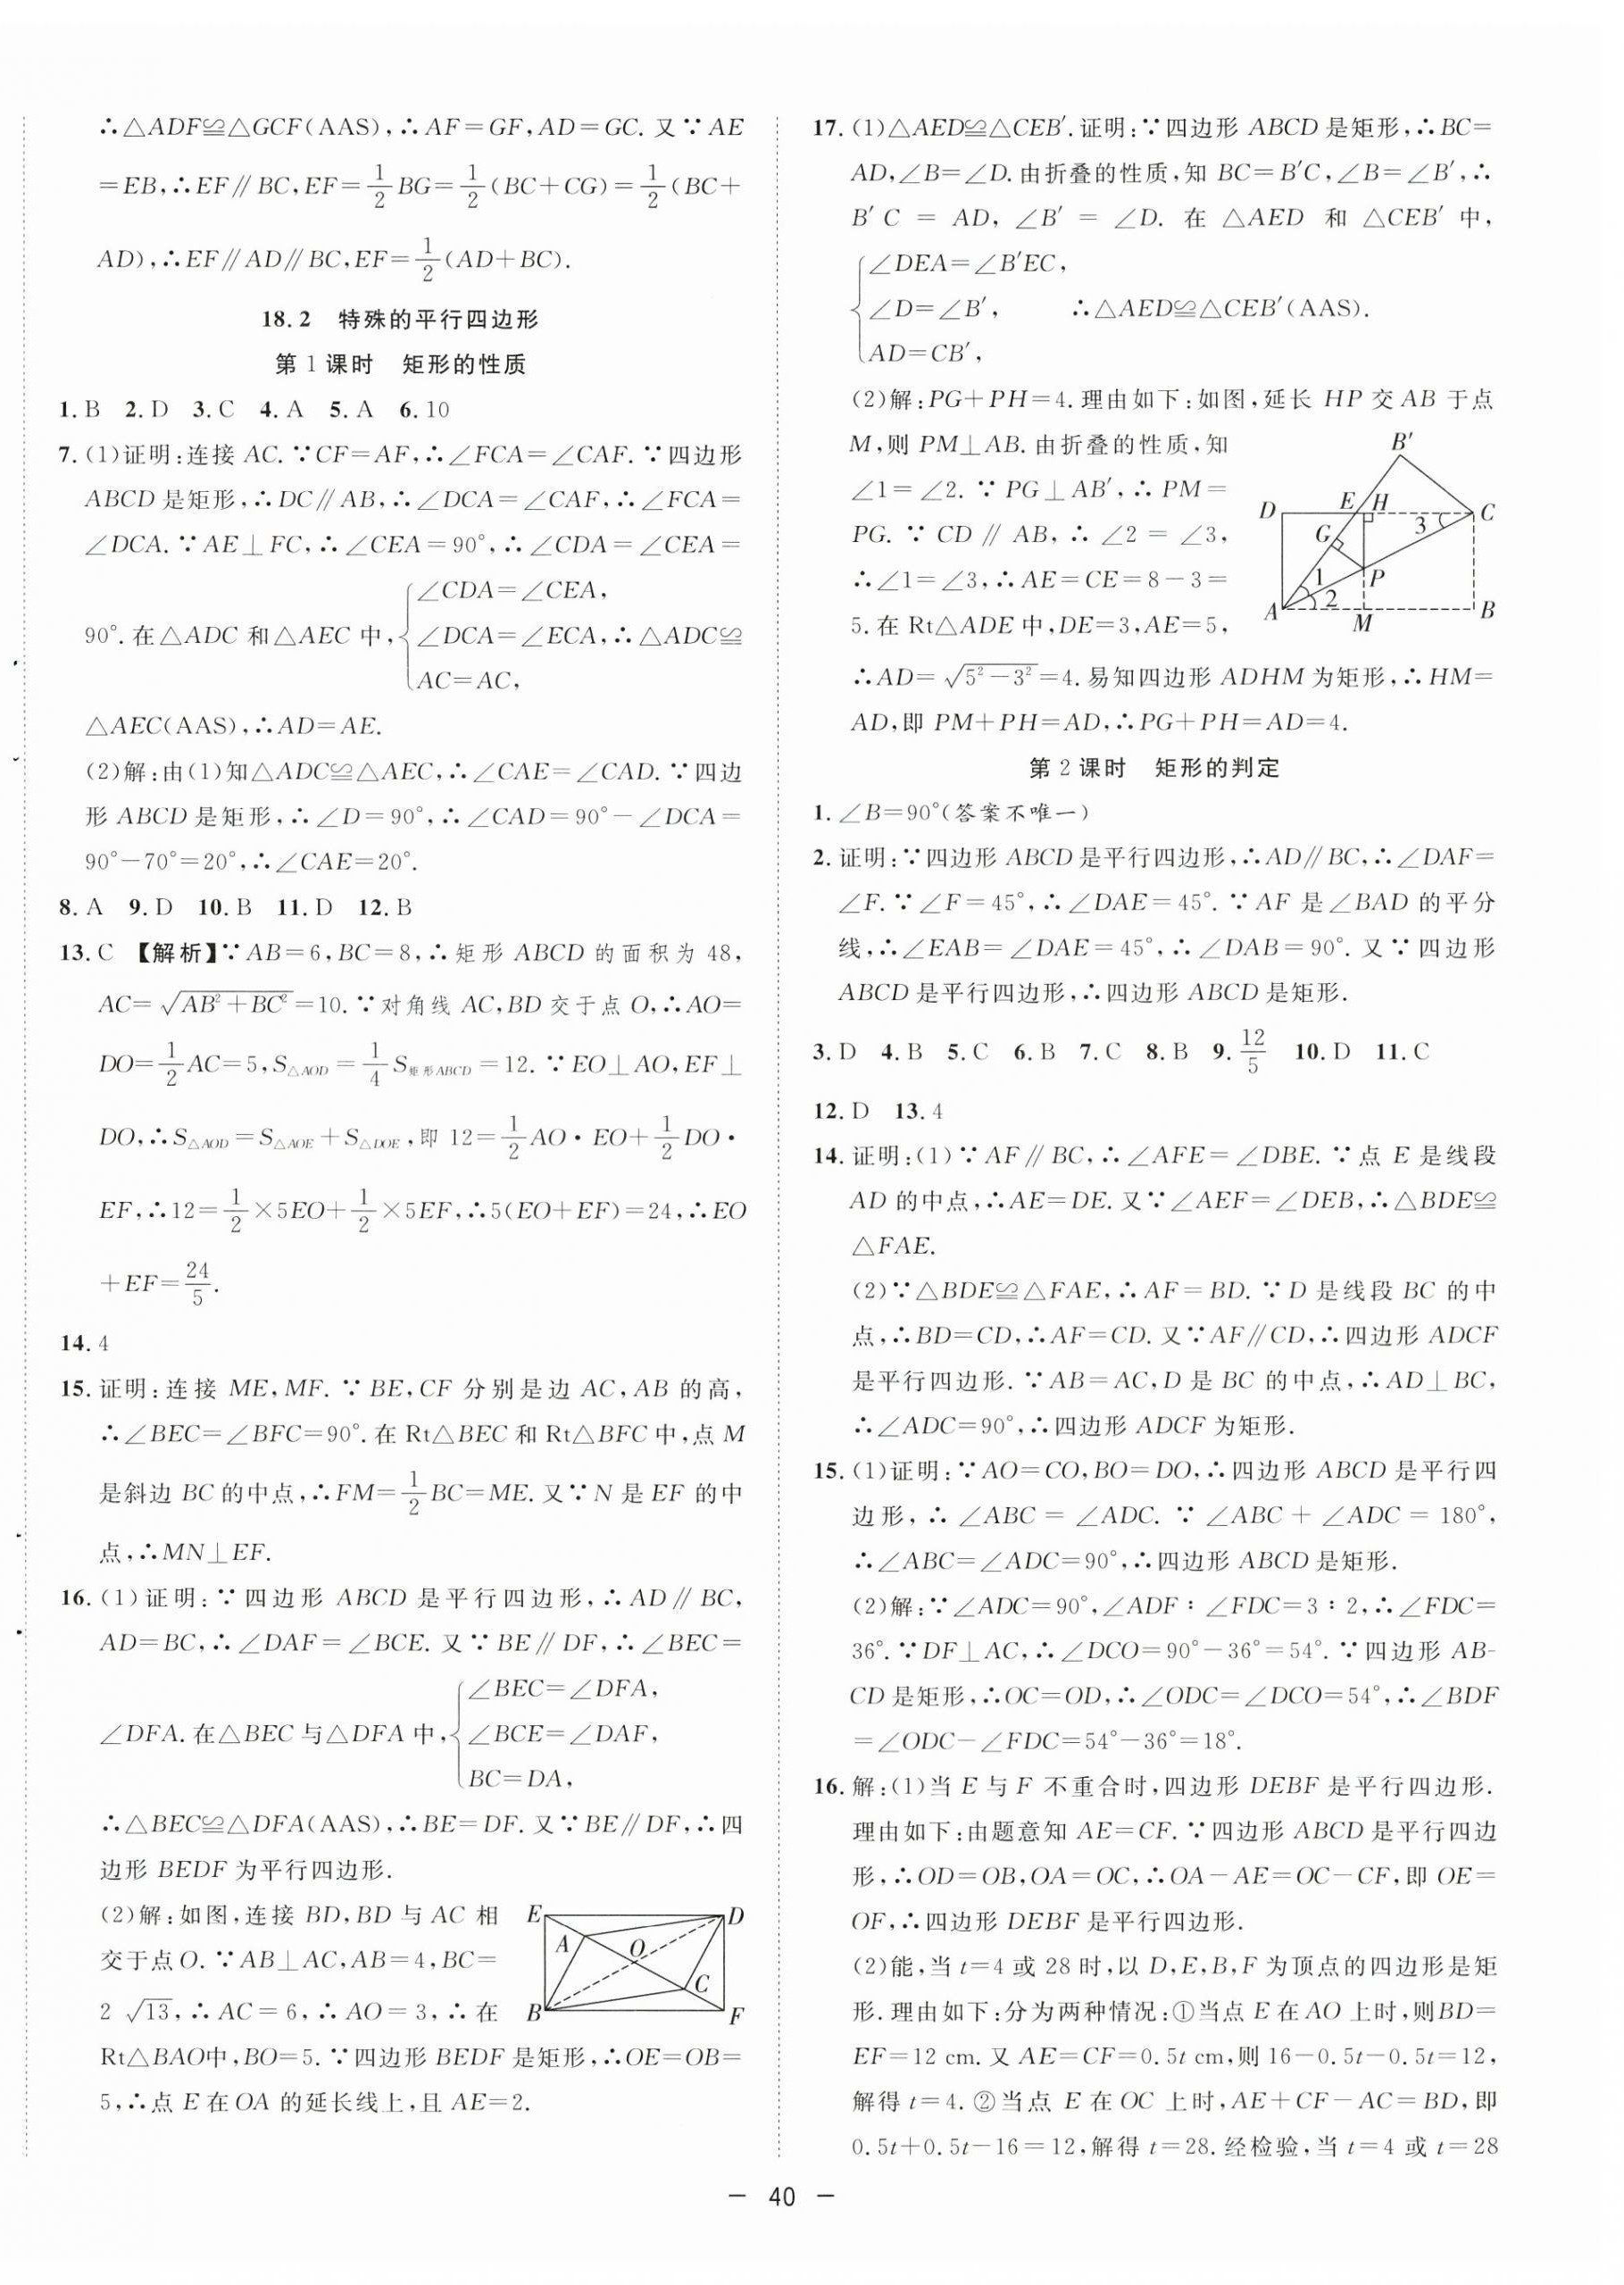 ∴△ADF≌△GCF(AAS),∴AF=GF,AD=GC.又∵AE
=EB,∴EF∥BC,EF=1/2BG=1/2(BC+CG)=1/2(BC+
AD),∴EF∥AD∥BC,EF=1/2(AD+BC).
18.2 特殊的平行四边形
第1课时 矩形的性质
1.B 2.D 3.C 4.A 5.A 6.10
7.(1)证明:连接AC.∵CF=AF,∴∠FCA=∠CAF.∵四边形
ABCD是矩形,∴DC∥AB,∴∠DCA=∠CAF,∴∠FCA=
∠DCA.∵AE⊥FC,∴∠CEA=90°,∴∠CDA=∠CEA=
∠CDA=∠CEA,
90°.在△ADC和△AEC中,{∠DCA=∠ECA,∴△ADC≌
AC=AC,
△AEC(AAS),∴AD=AE.
(2)解:由(1)知△ADC≌△AEC,∴∠CAE=∠CAD.∵四边
形ABCD是矩形,∴∠D=90°,∴∠CAD=90°-∠DCA=
90°-70°=20°,∴∠CAE=20°.
8.A 9.D 10.B 11.D 12.B
13.C 【解析】∵AB=6,BC=8,∴矩形ABCD的面积为48,
AC=√(AB²+BC²)=10.∵对角线AC,BD交于点O,∴AO=
DO=1/2AC=5,S△AOD=1/4S矩形ABCD=12.∵EO⊥AO,EF⊥
DO,∴S△AOD=S△AOE+S△DOE,即12=1/2AO·EO+1/2DO·
EF,∴12=1/2×5EO+1/2×5EF,∴5(EO+EF)=24,∴EO
+EF=24/5.
14.4
15.证明:连接ME,MF.∵BE,CF分别是边AC,AB的高,
∴∠BEC=∠BFC=90°.在Rt△BEC和Rt△BFC中,点M
是斜边BC的中点,∴FM=1/2BC=ME.又∵N是EF的中
点,∴MN⊥EF.
16.(1)证明:∵四边形ABCD是平行四边形,∴AD∥BC,
AD=BC,∴∠DAF=∠BCE.又∵BE∥DF,∴∠BEC=
∠BEC=∠DFA,
∠DFA.在△BEC与△DFA中,{∠BCE=∠DAF,
BC=DA,
∴△BEC≌△DFA(AAS),∴BE=DF.又∵BE∥DF,∴四
边形BEDF为平行四边形.
(2)解:如图,连接BD,BD与AC相
交于点O.∵AB⊥AC,AB=4,BC=
2√13,∴AC=6,∴AO=3,∴在
E
D
A
O
C
B
F
Rt△BAO中,BO=5.∵四边形BEDF是矩形,∴OE=OB=
5,∴点E在OA的延长线上,且AE=2.
17.(1)△AED≌△CEB′.证明:∵四边形ABCD是矩形,∴BC=
AD,∠B=∠D.由折叠的性质,知BC=B′C,∠B=∠B′,∴
B′C=AD,∠B′=∠D.在△AED和△CEB′中,
∠DEA=∠B′EC,
{∠D=∠B′, ∴△AED≌△CEB′(AAS).
AD=CB′,
(2)解:PG+PH=4.理由如下:如图,延长HP交AB于点
M,则PM⊥AB.由折叠的性质,知
∠1=∠2.∵PG⊥AB′,∴PM=
PG.∵CD∥AB,∴∠2=∠3,
∴∠1=∠3,∴AE=CE=8-3=
5.在Rt△ADE中,DE=3,AE=5,
B′
D
E
H
C
3
G
1
P
A
2
M
B
∴AD=√(5²-3²)=4.易知四边形ADHM为矩形,∴HM=
AD,即PM+PH=AD,∴PG+PH=AD=4.
第2课时 矩形的判定
1.∠B=90°(答案不唯一)
2.证明:∵四边形ABCD是平行四边形,∴AD∥BC,∴∠DAF=
∠F.∵∠F=45°,∴∠DAE=45°.∵AF是∠BAD的平分
线,∴∠EAB=∠DAE=45°,∴∠DAB=90°.又∵四边形
ABCD是平行四边形,∴四边形ABCD是矩形.
3.D 4.B 5.C 6.B 7.C 8.B 9.12/5 10.D 11.C
12.D 13.4
14.证明:(1)∵AF∥BC,∴∠AFE=∠DBE.∵点E是线段
AD的中点,∴AE=DE.又∵∠AEF=∠DEB,∴△BDE≌
△FAE.
(2)∵△BDE≌△FAE,∴AF=BD.∵D是线段BC的中
点,∴BD=CD,∴AF=CD.又∵AF∥CD,∴四边形ADCF
是平行四边形.∵AB=AC,D是BC的中点,∴AD⊥BC,
∴∠ADC=90°,∴四边形ADCF为矩形.
15.(1)证明:∵AO=CO,BO=DO,∴四边形ABCD是平行四
边形,∴∠ABC=∠ADC.∵∠ABC+∠ADC=180°,
∴∠ABC=∠ADC=90°,∴四边形ABCD是矩形.
(2)解:∵∠ADC=90°,∠ADF:∠FDC=3:2,∴∠FDC=
36°.∵DF⊥AC,∴∠DCO=90°-36°=54°.∵四边形AB-
CD是矩形,∴OC=OD,∴∠ODC=∠DCO=54°,∴∠BDF
=∠ODC-∠FDC=54°-36°=18°.
16.解:(1)当E与F不重合时,四边形DEBF是平行四边形.
理由如下:由题意知AE=CF.∵四边形ABCD是平行四边
形,∴OD=OB,OA=OC,∴OA-AE=OC-CF,即OE=
OF,∴四边形DEBF是平行四边形.
(2)能,当t=4或28时,以D,E,B,F为顶点的四边形是矩
形.理由如下:分为两种情况:①当点E在AO上时,则BD=
EF=12 cm.又AE=CF=0.5t cm,则16-0.5t-0.5t=12,
解得t=4.②当点E在OC上时,AE+CF-AC=BD,即
0.5t+0.5t-16=12,解得t=28.经检验,当t=4或t=28
— 40 —